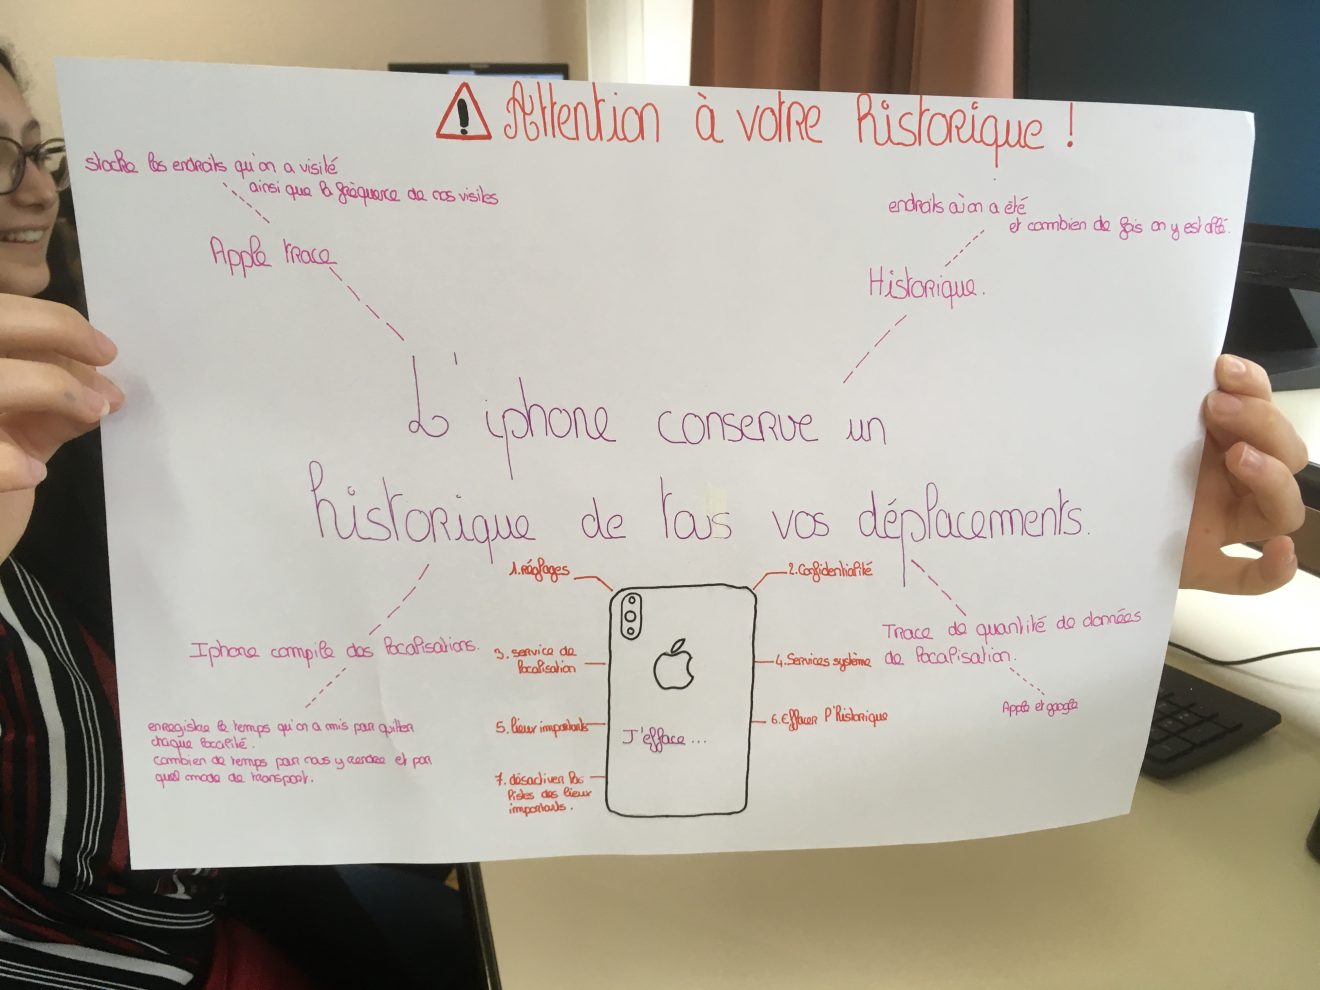 Attention à votre historique !
stocke les endroits qu'on a visité
ainsi que la fréquence de nos visites
Apple trace
endroits où on a été
et combien de fois on y est allé.
Historique.
L'iphone conserve un
historique de tous vos déplacements.
1. Réglages
2. Confidentialité
3. service de
localisation
4. Services système
5. lieux importants
6. Effacer l'historique
7. désactiver les
listes des lieux
importants.
J'efface...
Iphone compile des localisations.
enregistre le temps qu'on a mis pour quitter
chaque localité.
combien de temps pour nous y rendre et par
quel mode de transport.
Trace de quantité de données
de localisation.
Apple et google